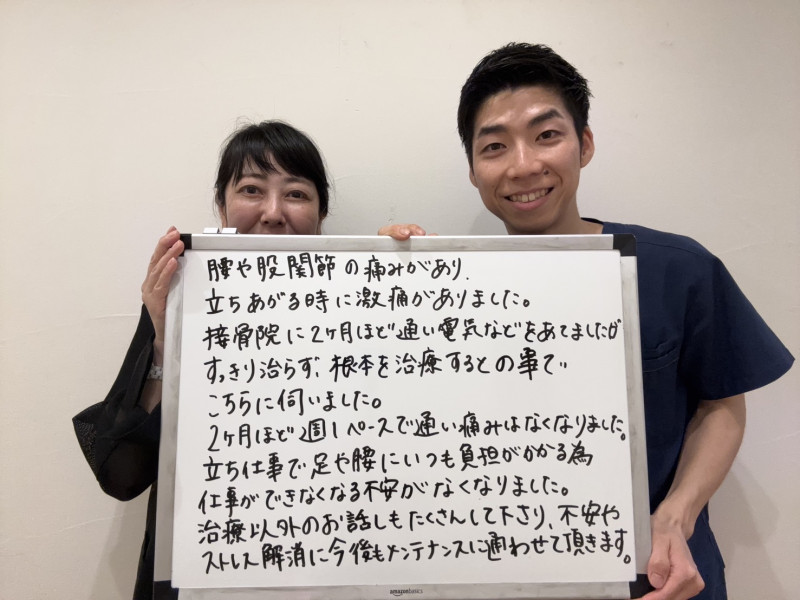 腰や股関節の痛みがあり、
立ちあがる時に激痛がありました。
接骨院に2ヶ月ほど通い電気などをあてましたが
すっきり治らず、根本を治療するとの事で
こちらに伺いました。
2ヶ月ほど週1ペースで通い痛みはなくなりました。
立ち仕事で足や腰にいつも負担がかかる為
仕事ができなくなる不安がなくなりました。
治療以外のお話しもたくさんして下さり、不安や
ストレス解消に今後もメンテナンスに通わせて頂きます。
amazonbasics